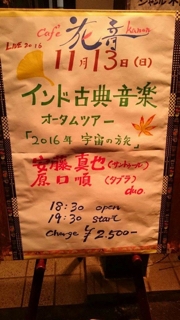 Cafe 旅音
LIVE 2016
11月13日(日)
インド古典音楽
オータムツアー
「2016年 宇宙の旅」
安藤真也(サントゥール)
原口順(タブラ)
duo
18:30 open
19:30 start
Charge ¥2,500-